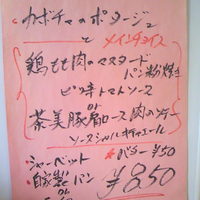 カボチャのポタージュ
と メインチョイス
鶏もも肉のマスタード
パン粉焼き
ピリ辛トマトソース
or
茶美豚肩ロース肉のソテー
ソースシャルキュティエール
・シャーベット
・自家製パン
バター ¥50
¥850